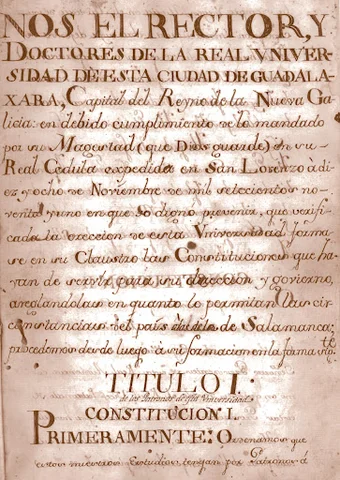 NOS EL RECTOR, Y
DOCTORES DE LA REAL VNIVER-
SIDAD DE ESTA CIUDAD DE GUADALA-
XARA, Capital del Reyno de la Nueva Ga-
licia: en debido cumplimiento de lo mandado
por su Magestad (que Dios guarde) en su
Real Cedula expedida en San Lorenzo à di-
ez y ocho de Noviembre de mil setecientos no-
venta y uno en que se dignó prevenir, que verifi-
cada la ereccion de esta Vniversidad forma-
se en su Claustro las Constituciones que ha-
yan de servir para su direccion y govierno,
arreglandolas en quanto lo permitan las cir-
cunstancias del pais à las de Salamanca;
procedemos desde luego à su formacion en la forma sigte
TITULO I.
de los Patronos de esta Vniversidad.
CONSTITUCION I.
PRIMERAMENTE: Ordenamos que
estos nuestros Estudios tengan por Patronos à